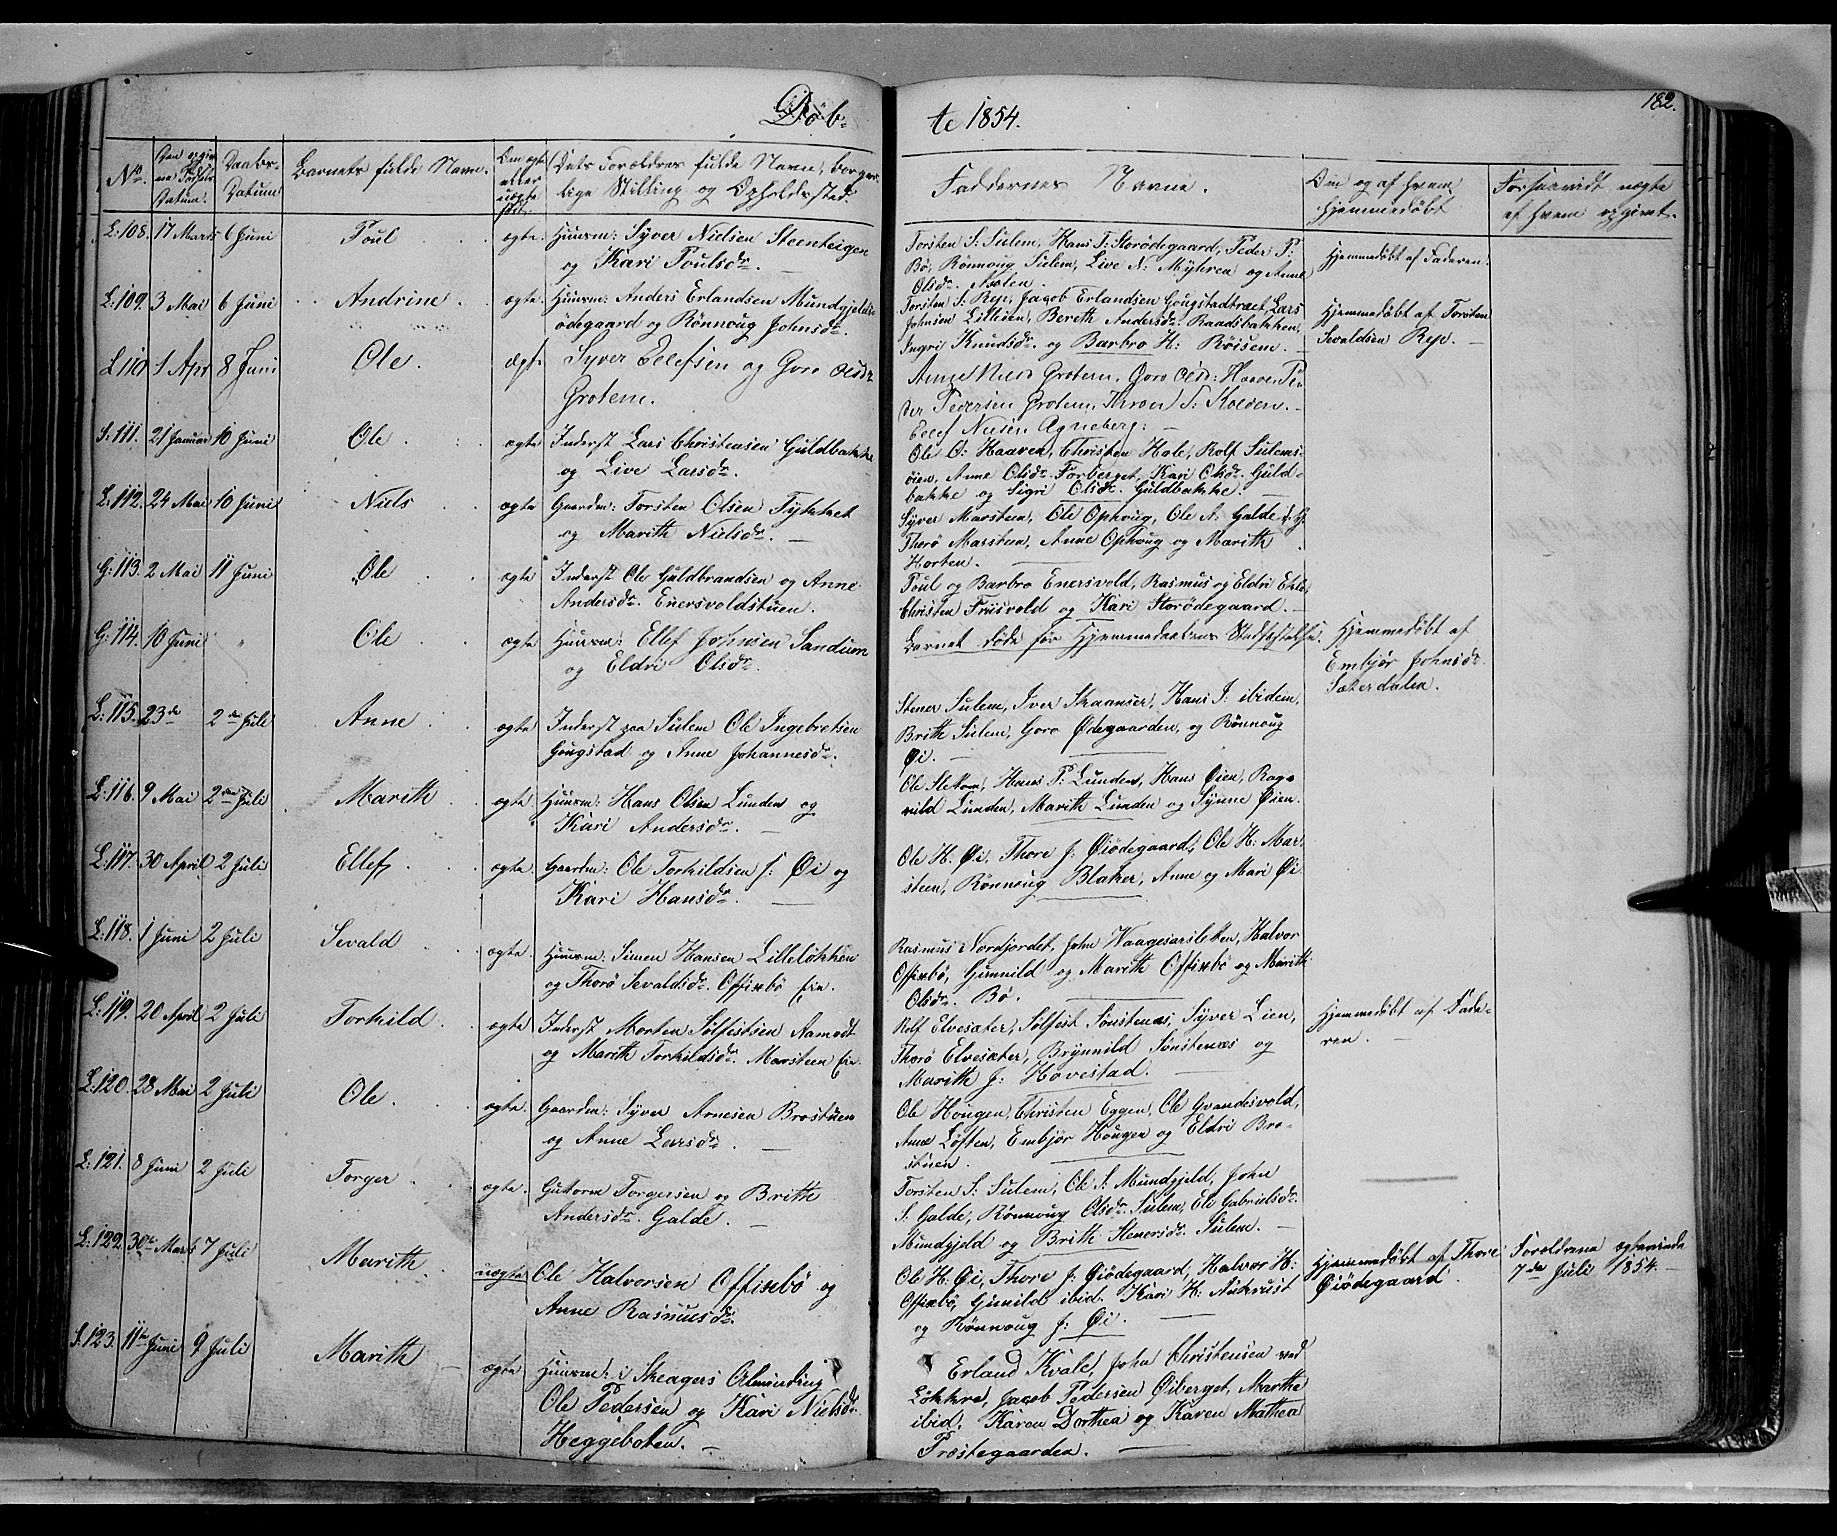 Døb-
te 1854.
182.
No.
Den opgivne Fødsels Datum.
Daabs-Datum
Barnets fulde Navn.
Om ægte eller uægte født.
Dets Forældres fulde Navn, borgerlige Stilling og Opholdssted.
Faddernes Navne.
Om og af hvem hjemmedøbt
Forsaavidt uægte af hvem opgivet.
L: 108. 17 Marts 6 Juni Poul ægte. Huusm: Syver Nielsen Steenteigen
og Kari Poulsdr.
Torsten S: Sulem, Hans T: Storødegaard, Peder P:
Bø, Rønnoug Sulem, Live N: Myhren og Anne
Olsdr. Nusten.
Hjemmedøbt af Faderen.
L: 109. 3 Mai 6 Juni Andrine ægte. Huusm: Anders Erlandsen Mundgjelds-
ødegaard og Rønnoug Johnsdr.
Torsten S: Rep, Jacob Erlandsen Gougstadtræet, Lars
Johnsen Lillien, Bereth Andersdr. Raadsbakken,
Ingri Knudsdr. og Barbro H: Røisem.
Hjemmedøbt af Torsten
Sevaldsen Rep.
L 110 1 Apr 8 Juni Ole ægt. Syver Ellefsen og Goro Olsdr
Grotem.
Grotem, Goro Olsd: Haave, Pe-
der Pedersen Grotem, Thron S: Kolden.
Ellef Agneberg.
S: 111. 21 Januar 10 Juni Ole ægte Inderst Lars Christensen Guldbakke
og Live Larsdr.
Ole O: Haaven, Christen Hole, Rolf Sulems-
øien, Anne Olsdr. Forberget, Kari Olsdr. Guld-
bakke og Sigri Olsdr. Guldbakke.
L: 112. 24 Mai 10 Juni Niels ægte Gaardm: Torsten Olsen
og Marith Nielsdr.
Syver Marsteen, Ole Ophoug, Ole A: Galde
Thorø Marsteen, Anne Ophoug og Marith
Horten.
G: 113. 2 Mai 11 Juni Ole ægte Inderst Ole Guldbrandsen og Anne
Andersdr. Enersvoldstuen.
Poul og Barbro Enersvold, Rasmus og Eldri
Christen Friisvold og Kari Storødegaard.
G: 114. 10 Juni " Ole ægte Huusm: Ellef Johnsen Sandum
og Eldri Olsdr.
Barnet døde før Hjemmedaabens Stadfæstelse.
Hjemmedøbt af
Embjør Johnsdr.
Sæterdalen.
L: 115. 23de 2den Juli Anne ægte Inderst paa Sulem Ole Ingebretsen
Gougstad og Anne Johannesdr.
Stener Sulem, Iver Skaanser, Hans I: ibidem,
Brith Sulem, Goro Ødegaarden, og Rønnoug
Øi.
L: 116. 9 Mai 2den Juli Marith ægte Huusm: Hans Olsen Lunden og
Kari Andersdr.
Ole Sletom, Hans P: Lunden, Hans Øien, Rag-
nild Lunden, Marith Lunden og Synne Øien.
L: 117. 30 April 2 Juli Ellef ægte. Gaardm: Ole Torkildsen S: Øi og
Kari Hansdr.
Ole H. Øi, Thore J: Øiødegaard, Ole H. Mar-
steen, Rønnoug Blaker, Anne og Mari Øi
L: 118. 1 Juni 2 Juli Sevald ægte. Huusm: Simen Hansen Lilleløkken
og Thorø Sevaldsdr. Offixbø Eie.
Rasmus Nordjordet, John Vaagesarsletten, Halvor
Offixbø, Gunnild og Marith Offixbø og Marith
Olsdr. Bø.
L: 119. 20 April 2 Juli Torkild ægte. Inderst Morten Sølfestsen Aamodt
og Marith Torkildsdr. Marsteen Eie.
Rolf Elvesæter, Sølfest Sønstenæs, Syver Lien,
Thorø Elvesæter, Brynnild Sønstenæs og
Marith J: Hovestad.
Hjemmedøbt af Fade-
ren.
L: 120. 28 Mai 2 Juli Ole. ægte. Gaardm: Syver Arnesen Brostuen
og Anne Larsdr.
Ole Hougen, Christen Eggen, Ole Gvandesvold,
Anne Løften, Embjør Hougen og Eldri Bro-
stuen.
L: 121. 8 Juni 2 Juli Torger ægte. Guttorm Torgersen og Brith
Andersdr. Galde.
Torsten S: Sulem, Ole S: Mundgjeld, John
S: Galde, Rønnoug Olsdr. Sulem, Eli Gabrielsdr.
Mundgjeld og Brith Stenersdr. Sulem.
L: 122 30te Marts 7 Juli Marith uægte Ole Halvorsen Offixbø og
Anne Rasmusdr.
Ole H. Øi, Thore J: Øiødegaard, Halvor H:
Offixbø, Gunild ibid. Kari H: Aukrust
og Rønnoug J: Øi.
Hjemmedøbt af Thore
Øiødegaard.
Forældrene ægteviede
7de Juli 1854.
S. 123. 11te Juni 9 Juli Marith ægte Huusm: i Skeagers Alminding
Ole Pedersen og Kari Nielsdr.
Heggeboten.
Erland Kvale, John Christensen ved
Løkkre, Jacob Pedersen Øiberget, Marthe
ibid. Karen Dorthea og Karen Mathea
Præstegaarden.